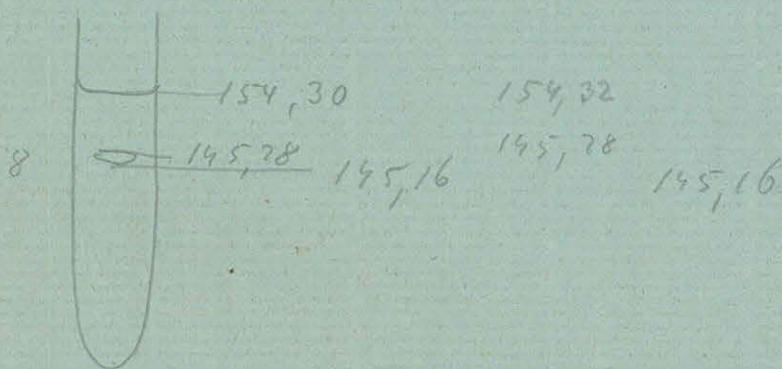 154,30 154,32
8 145,28 145,28
145,16 145,16